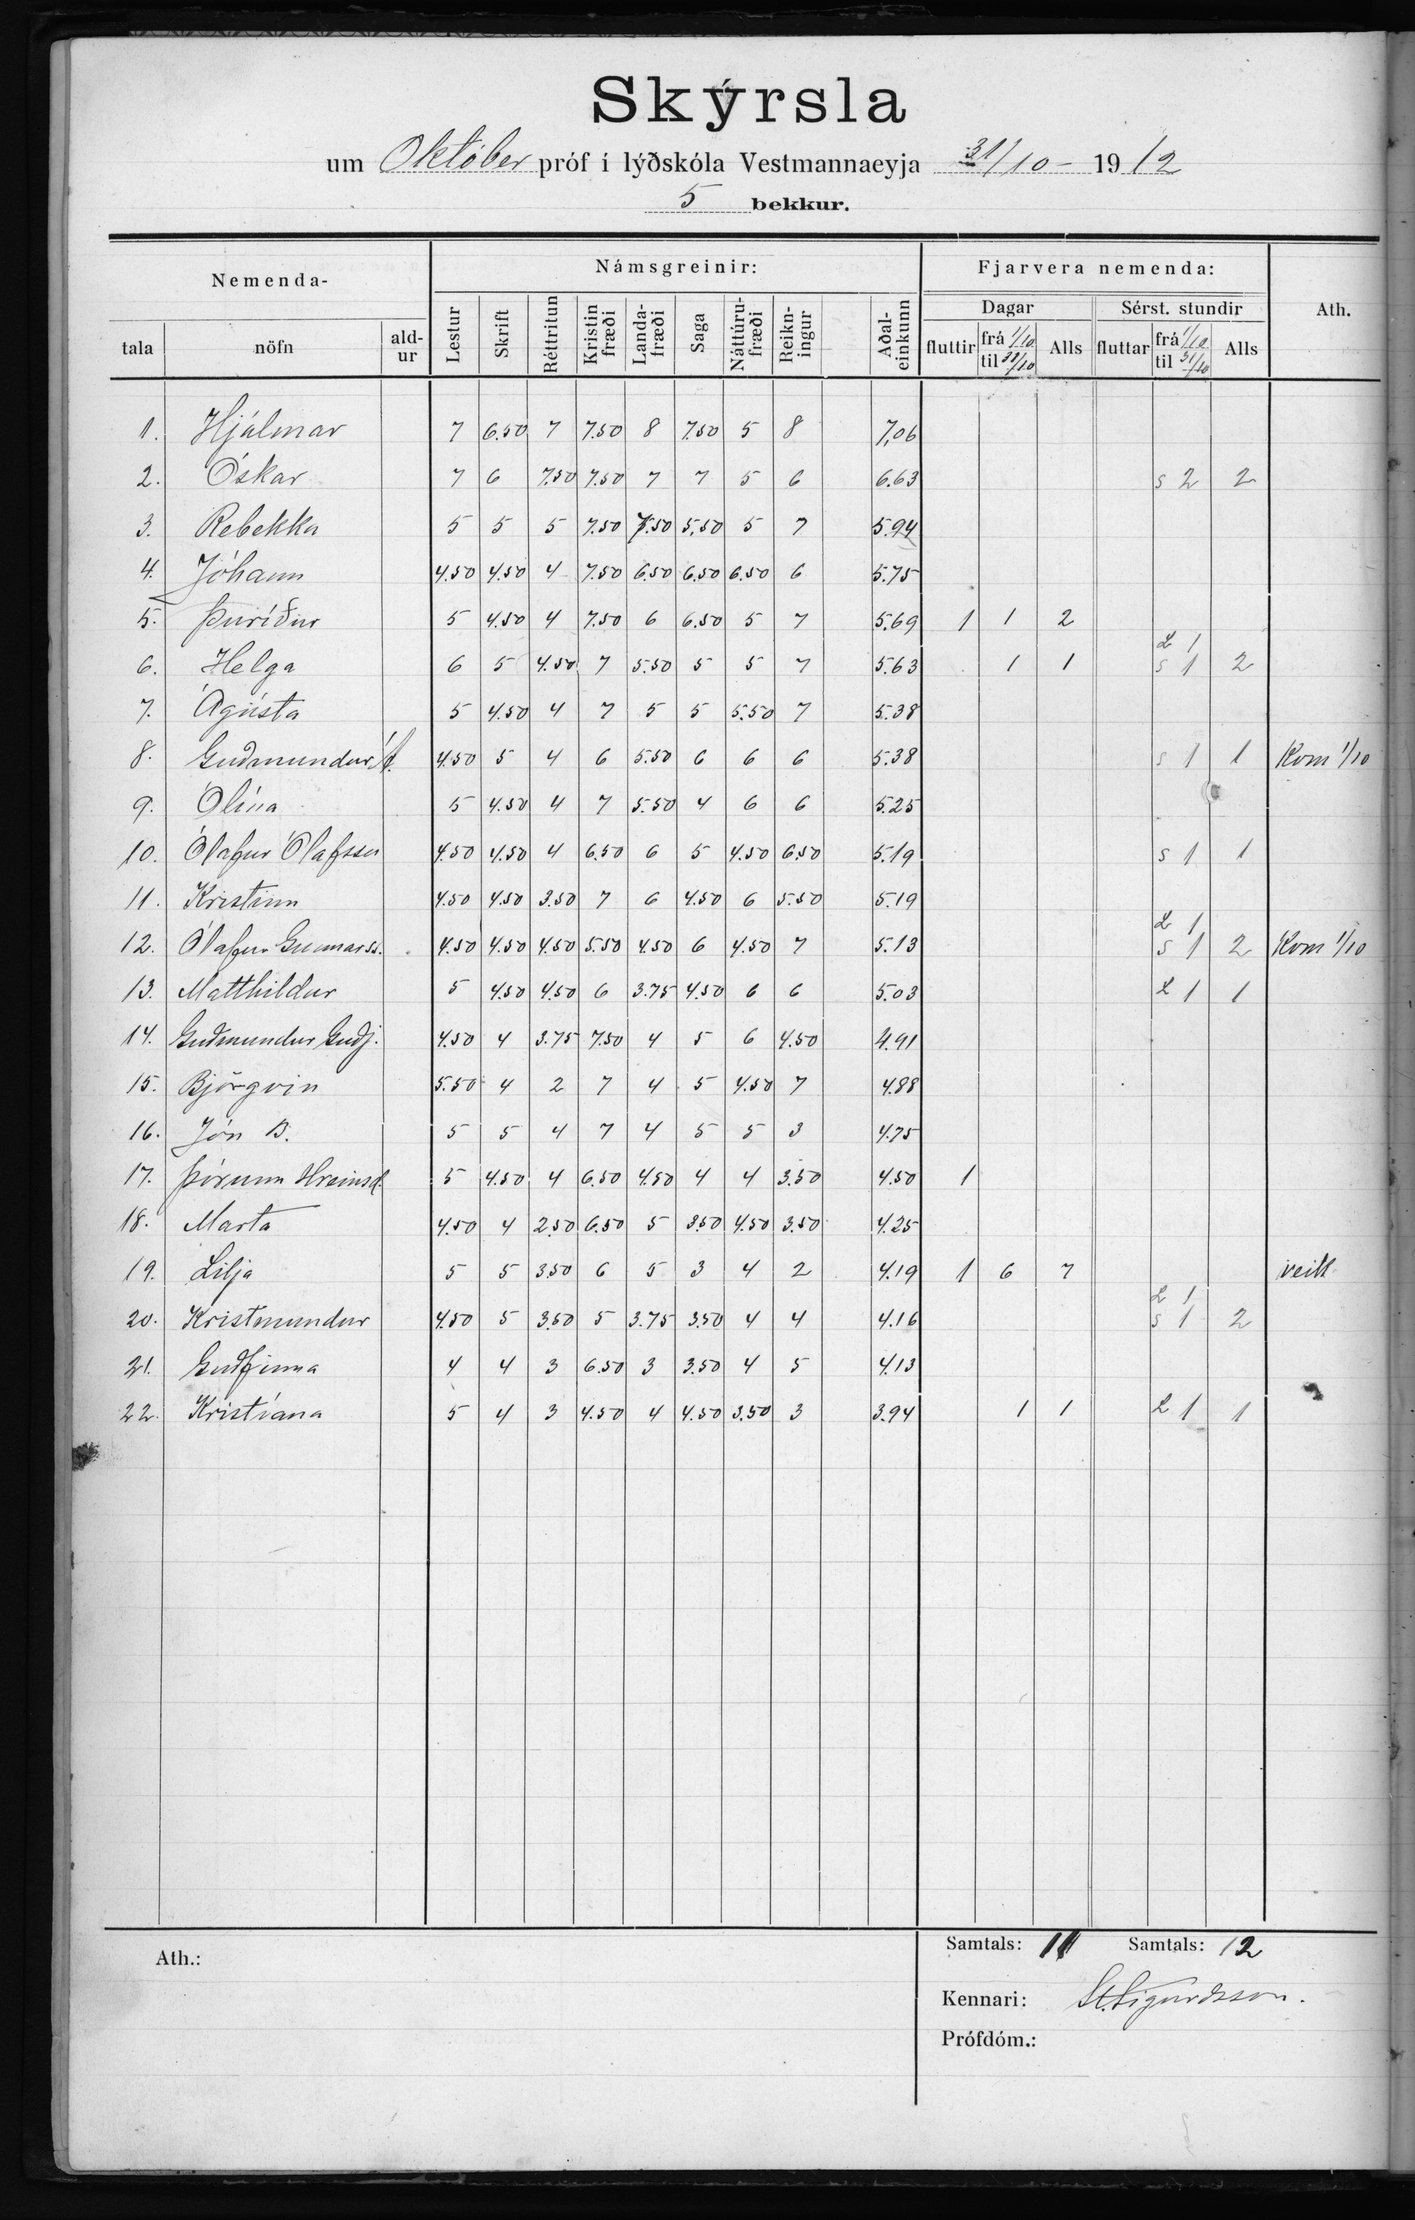 Skýrsla
um Október próf í lýðskóla Vestmannaeyja 31/10 - 1912
5 bekkur.
Nemenda- Námsgreinir: Fjarvera nemenda: Ath.
Dagar Sérst. stundir
tala nöfn ald-ur Lestur Skrift Réttritun Kristin fræði Landa-fræði Saga Náttúru-fræði Reikn-ingur Aðal-einkunn fluttir frá 1/10 til 31/10 Alls fluttar frá 1/10 til 31/10 Alls
1. Hjálmar 7 6.50 7 7.50 8 7.50 5 8 7,06
2. Óskar 7 6 7.50 7.50 7 7 5 6 6.63 s 2 2
3. Rebekka 5 5 5 7.50 7.50 5,50 5 7 5.94
4. Jóhann 4.50 4.50 4 7.50 6.50 6.50 6.50 6 5.75
5. Þuríður 5 4.50 4 7.50 6 6.50 5 7 5.69 1 1 2
6. Helga 6 5 4.50 7 5.50 5 5 7 5.63 1 1 L 1 s 1 2
7. Ágústa 5 4.50 4 7 5 5 5.50 7 5.38
8. Guðmundur Á. 4.50 5 4 6 5.50 6 6 6 5.38 s 1 1 Kom 1/10
9. Ólína 5 4.50 4 7 5.50 4 6 6 5.25
10. Ólafur Ólafsson 4.50 4.50 4 6.50 6 5 4.50 6.50 5.19 s 1 1
11. Kristinn 4.50 4.50 3.50 7 6 4.50 6 5.50 5.19
12. Ólafur Gunnarss. 4.50 4.50 4.50 5.50 4.50 6 4.50 7 5.13 L 1 s 1 2 Kom 1/10
13. Matthildur 5 4.50 4.50 6 3.75 4.50 6 6 5.03 L 1 1
14. Guðmundur Guðj. 4.50 4 3.75 7.50 4 5 6 4.50 4.91
15. Björgvin 5.50 4 2 7 4 5 4.50 7 4.88
16. Jón B. 5 5 4 7 4 5 5 3 4.75
17. Þórunn Hreinsd. 5 4.50 4 6.50 4.50 4 4 3.50 4.50 1
18. Marta 4.50 4 2.50 6.50 5 3.50 4.50 3.50 4.25
19. Lilja 5 5 3.50 6 5 3 4 2 4.19 1 6 7 veik
20. Kristmundur 4.50 5 3.50 5 3.75 3.50 4 4 4.16 L 1 s 1 2
21. Guðfinna 4 4 3 6.50 3 3.50 4 5 4.13
22. Kristíana 5 4 3 4.50 4 4.50 3.50 3 3.94 1 1 L 1 1
Ath.: Samtals: 11 Samtals: 12
Kennari: St. Sigurðsson.
Prófdóm.: